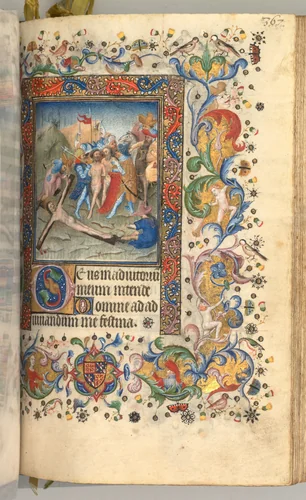 367
Deus in adiutoriu
meum intende
Domine ad ad
iuuandum me festina.